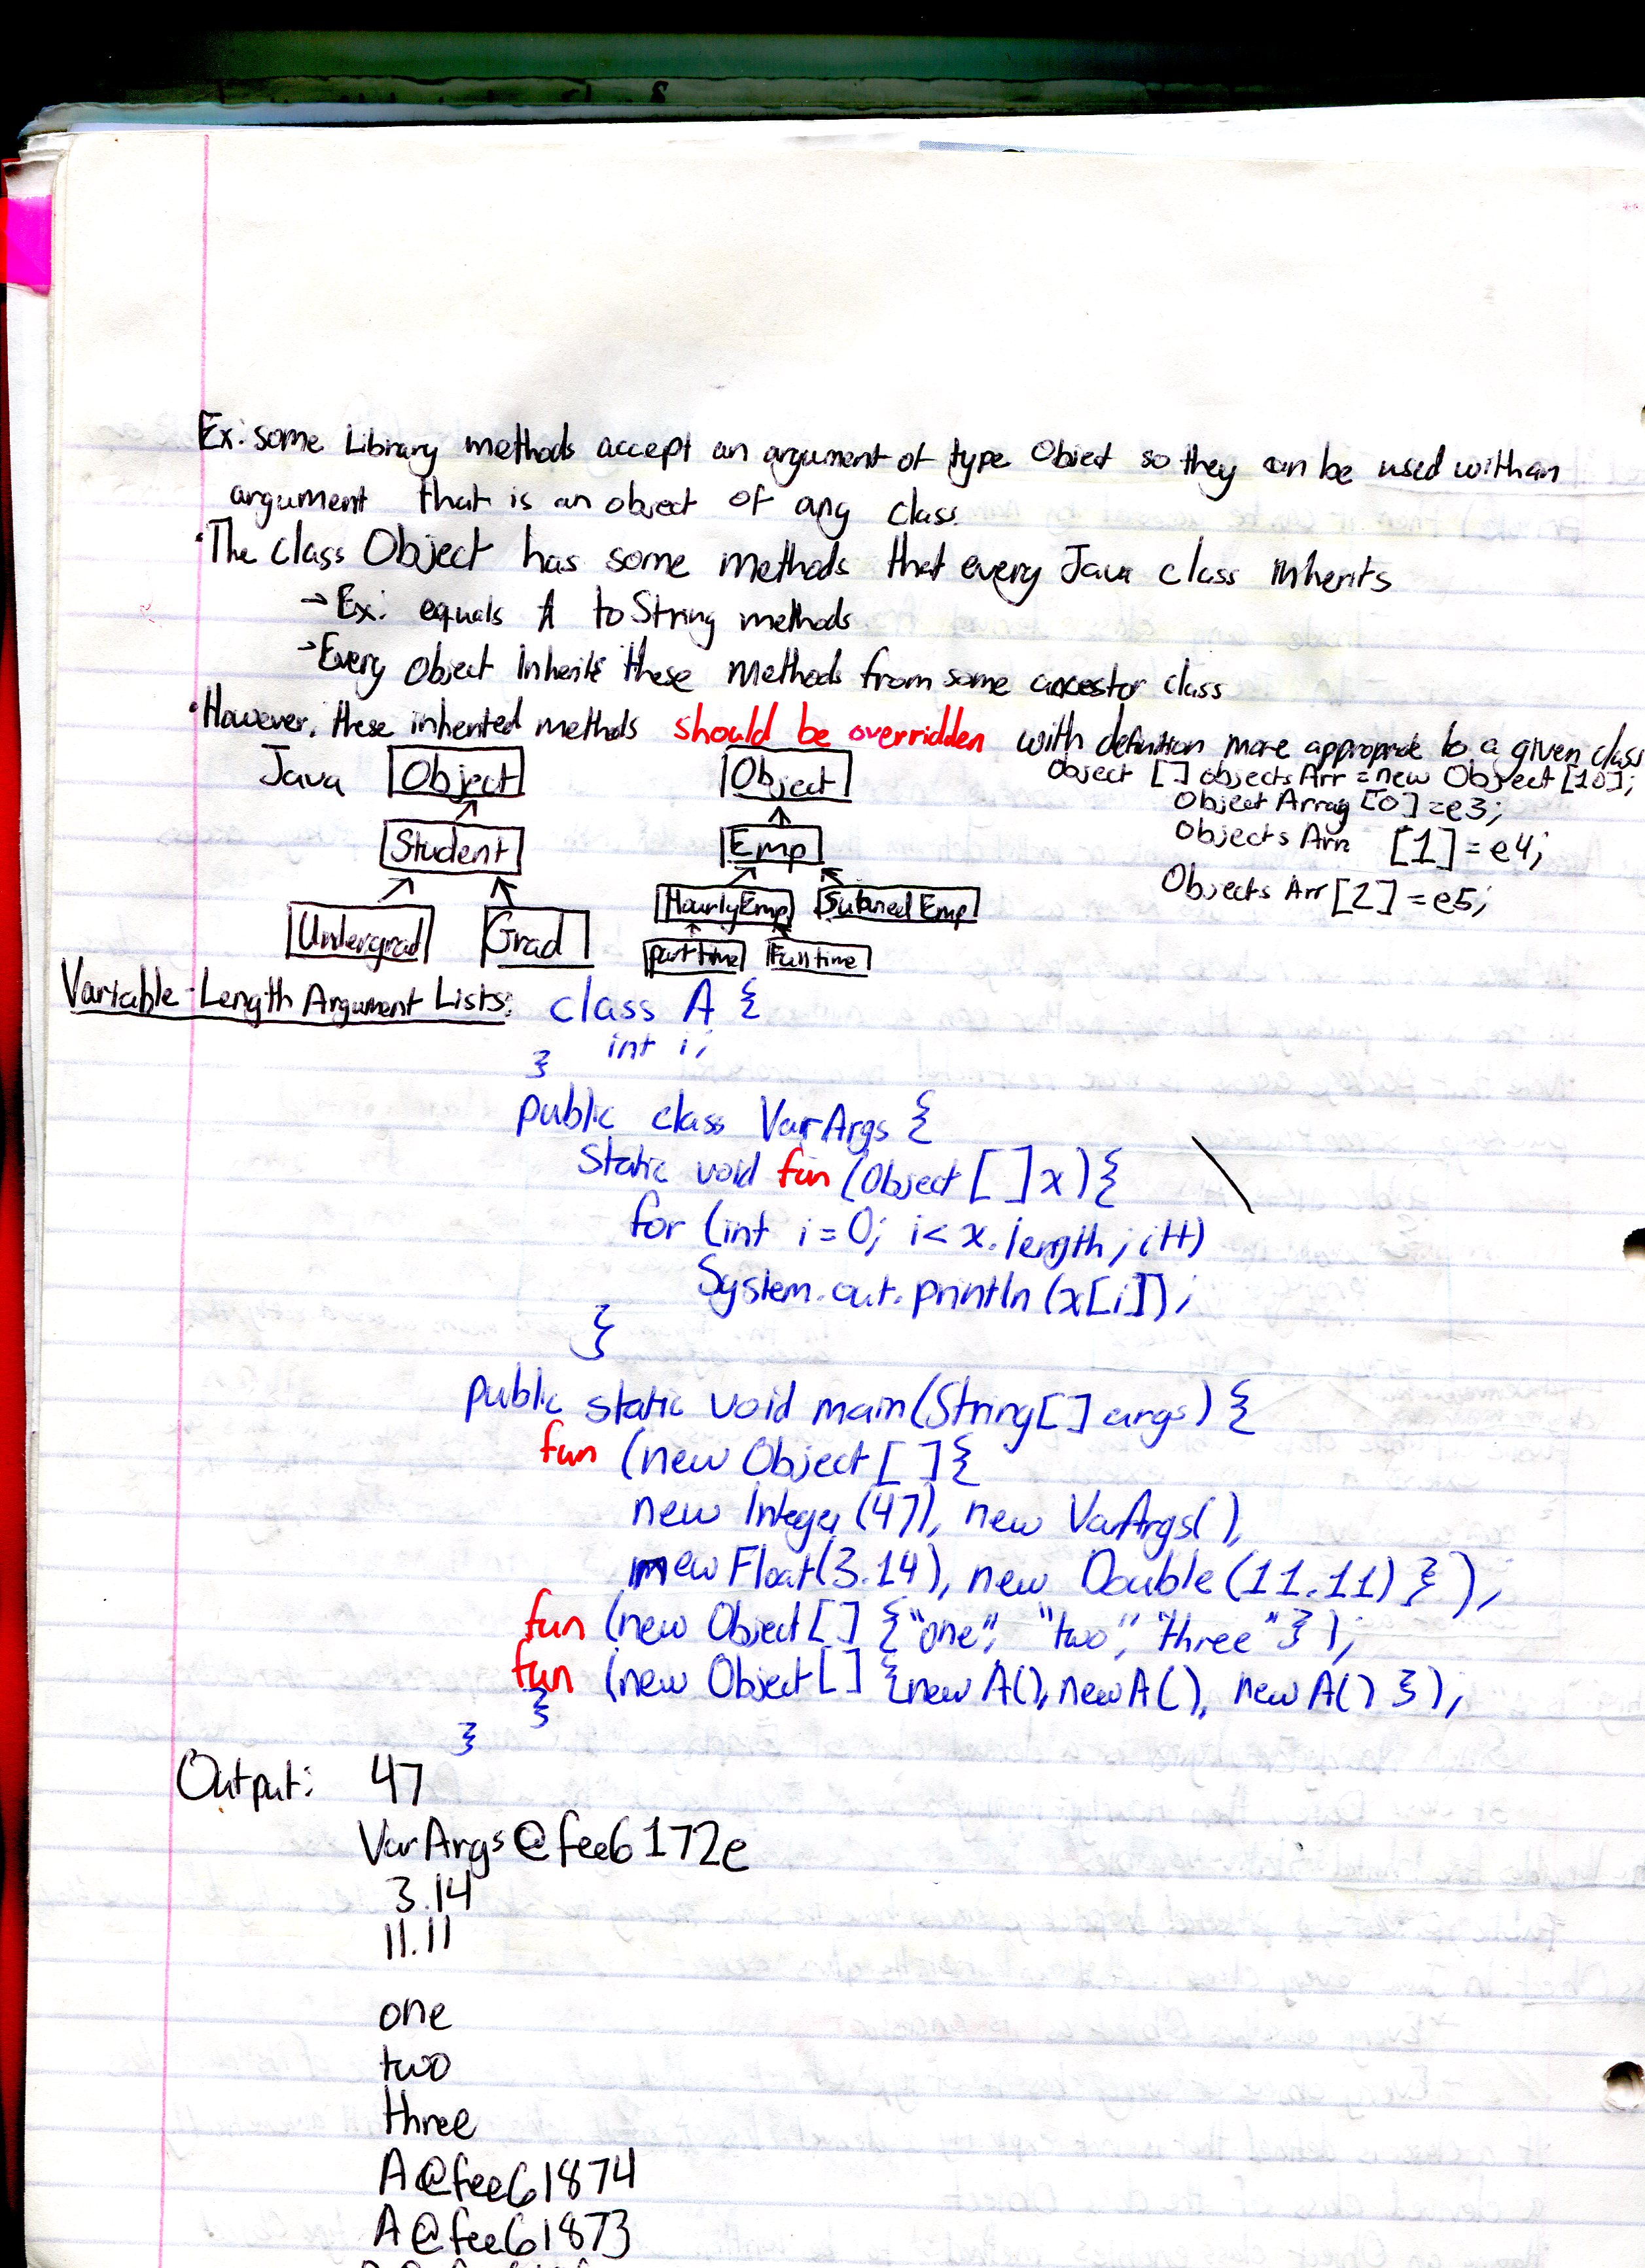 Ex: some Library methods accept an argument of type Object so they can be used with an
argument that is an object of any class.
• The class Object has some methods that every Java class Inherits
→ Ex: equals & toString methods
→ Every Object Inherits these Methods from some ancestor class
• However, these inherited methods should be overridden with definition more appropriate to a given class
Java
Object
Student
Undergrad
Grad
Object
Emp
HourlyEmp
Salaried Emp
part time
Full time
Object [] objectsArr = new Object [10];
Object Array [0] = e3;
Objects Arr [1] = e4;
Objects Arr [2] = e5;
Variable-Length Argument Lists:
class A {
int i;
}
public class VarArgs {
static void fun (Object [ ] x) {
for (int i = 0; i < x.length; i++)
System.out.println (x[i]);
}
public static void main (String [] args) {
fun (new Object [ ] {
new Integer (47), new VarArgs( ),
new Float(3.14), new Double (11.11) } );
fun (new Object [ ] {"one", "two", "three" } );
fun (new Object [ ] {new A(), new A( ), new A( ) } );
}
}
Output: 47
VarArgs@fee6172e
3.14
11.11
one
two
three
A@fee61874
A@fee61873